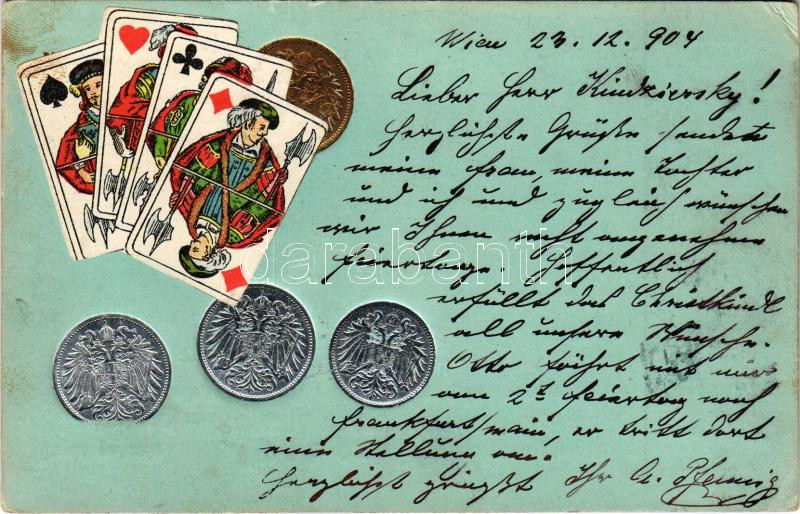 Wien 23.12.904
Lieber Herr Kindziersky!
herzlichste Grüße sendet
meine Frau, meine Tochter
und ich und zugleich wünschen
wir Ihnen recht angenehme
Feiertage. Hoffentlich
erfüllt das Christkindl
all unsere Wünsche.
Otto fährt mit mir
am 2t Feiertag nach
Frankfurt/Main, er tritt dort
eine Stellung an.
Herzlichst grüßt Ihr A. Pfennig
darabanth